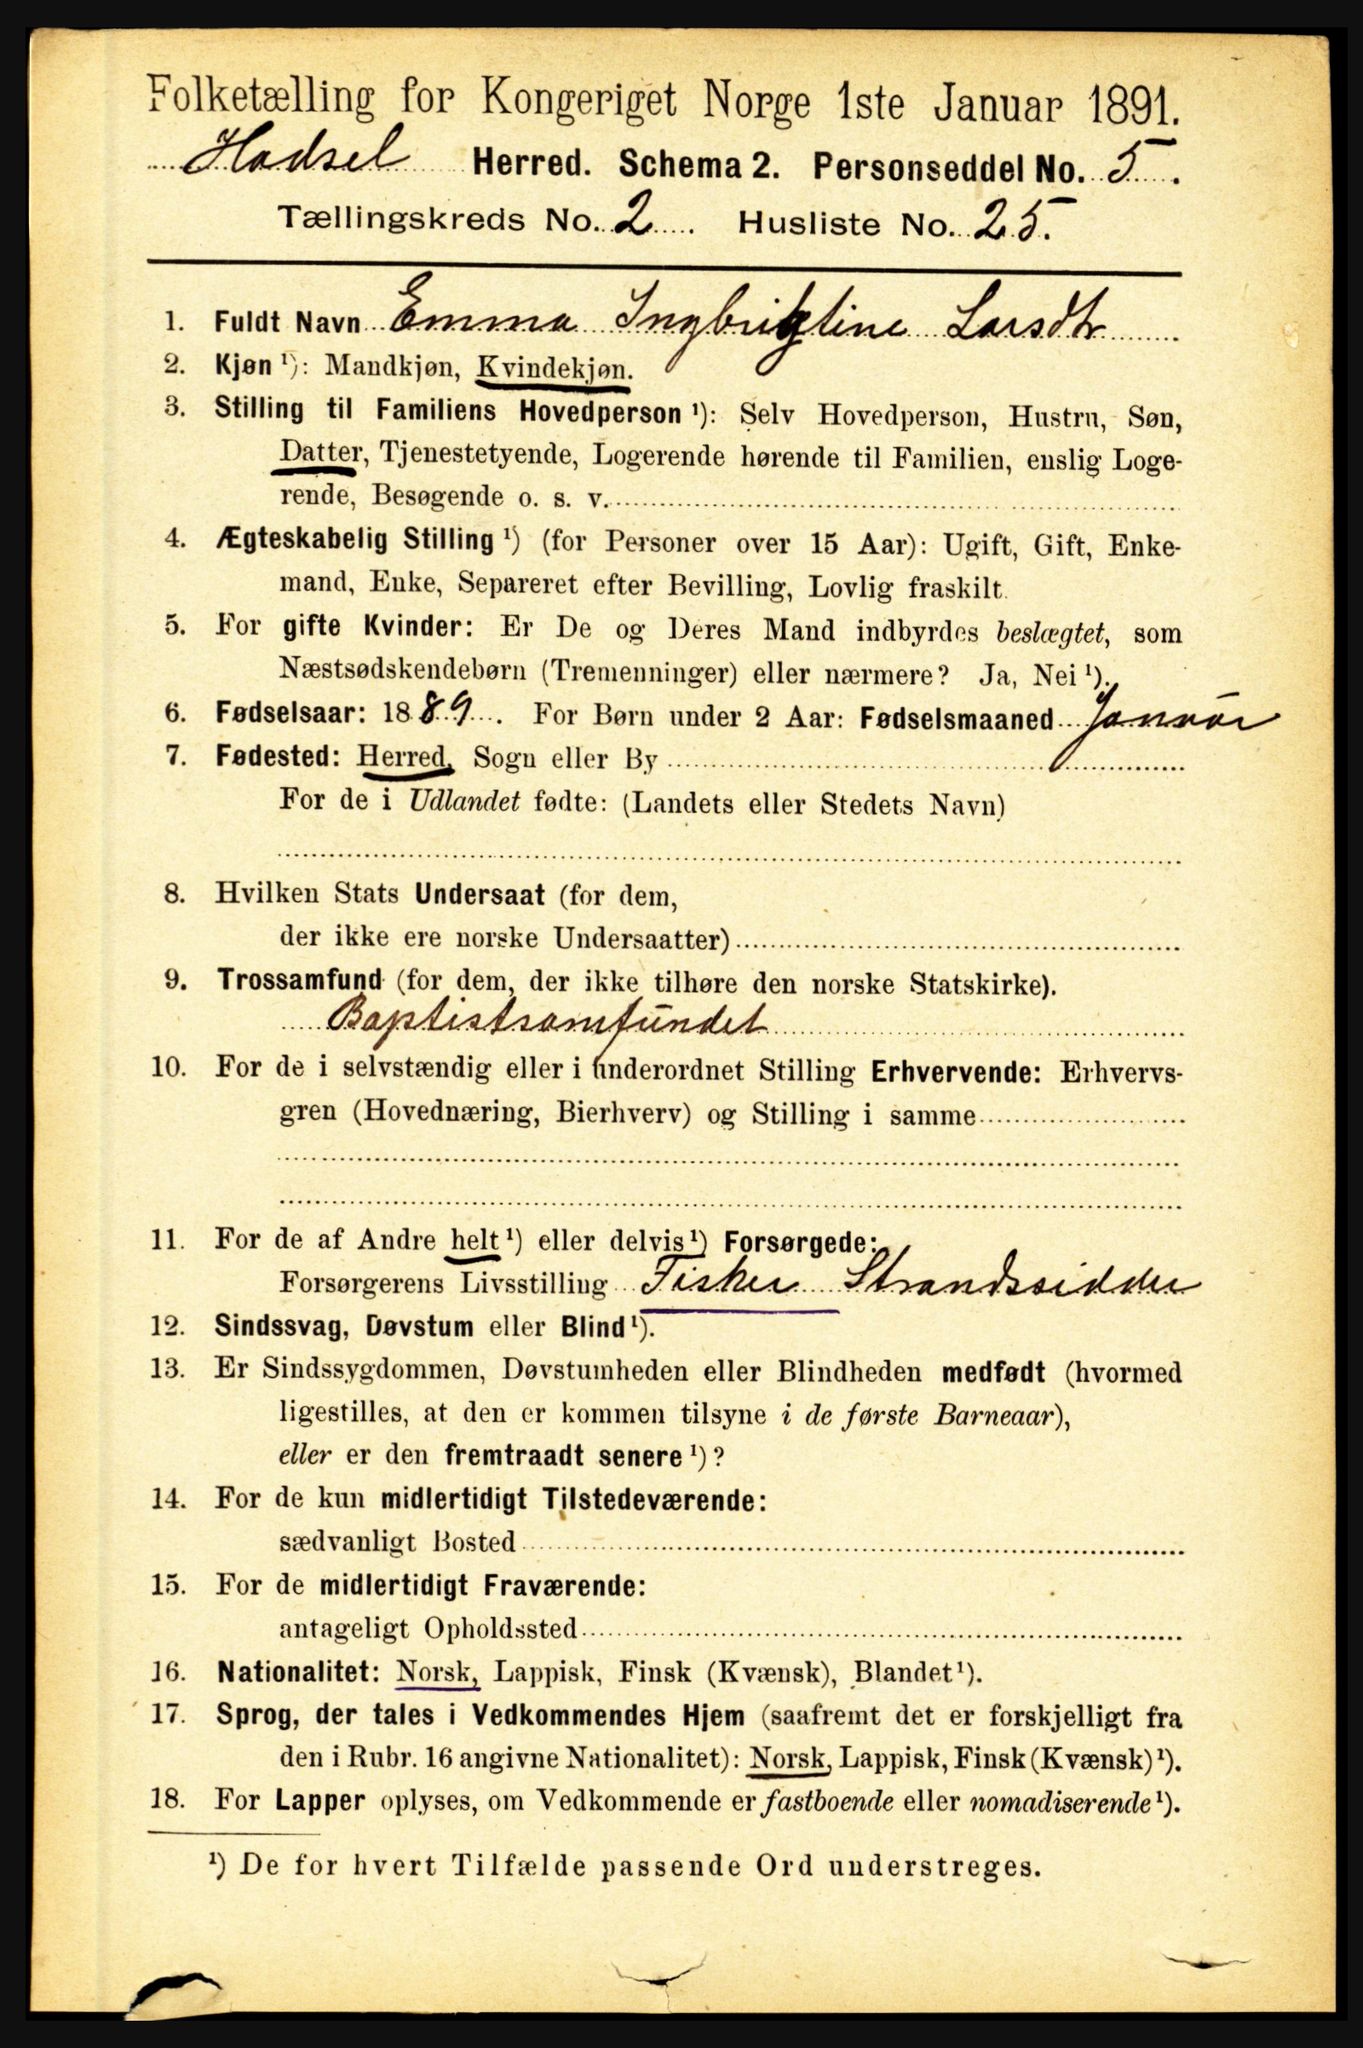 Folketælling for Kongeriget Norge 1ste Januar 1891.
Hadsel Herred. Schema 2. Personseddel No. 5.
Tællingskreds No. 2. Husliste No. 25.
1. Fuldt Navn Emma Ingbrigtine Larsdtr
2. Kjøn ¹): Mandkjøn, Kvindekjøn.
3. Stilling til Familiens Hovedperson ¹): Selv Hovedperson, Hustru, Søn,
Datter, Tjenestetyende, Logerende hørende til Familien, enslig Loge-
rende, Besøgende o. s. v.
4. Ægteskabelig Stilling ¹) (for Personer over 15 Aar): Ugift, Gift, Enke-
mand, Enke, Separeret efter Bevilling, Lovlig fraskilt.
5. For gifte Kvinder: Er De og Deres Mand indbyrdes beslægtet, som
Næstsødskendebørn (Tremenninger) eller nærmere? Ja, Nei ¹).
6. Fødselsaar: 1889. For Børn under 2 Aar: Fødselsmaaned Januar
7. Fødested: Herred, Sogn eller By
For de i Udlandet fødte: (Landets eller Stedets Navn)
8. Hvilken Stats Undersaat (for dem,
der ikke ere norske Undersaatter)
9. Trossamfund (for dem, der ikke tilhøre den norske Statskirke).
Baptistsamfundet
10. For de i selvstændig eller i underordnet Stilling Erhvervende: Erhvervs-
gren (Hovednæring, Bierhverv) og Stilling i samme
11. For de af Andre helt ¹) eller delvis ¹) Forsørgede:
Forsørgerens Livsstilling Fisker Strandsidder
12. Sindssvag, Døvstum eller Blind ¹).
13. Er Sindssygdommen, Døvstumheden eller Blindheden medfødt (hvormed
ligestilles, at den er kommen tilsyne i de første Barneaar),
eller er den fremtraadt senere ¹)?
14. For de kun midlertidigt Tilstedeværende:
sædvanligt Bosted
15. For de midlertidigt Fraværende:
antageligt Opholdssted
16. Nationalitet: Norsk, Lappisk, Finsk (Kvænsk), Blandet ¹).
17. Sprog, der tales i Vedkommendes Hjem (saafremt det er forskjelligt fra
den i Rubr. 16 angivne Nationalitet): Norsk, Lappisk, Finsk (Kvænsk) ¹).
18. For Lapper oplyses, om Vedkommende er fastboende eller nomadiserende ¹).
¹) De for hvert Tilfælde passende Ord understreges.